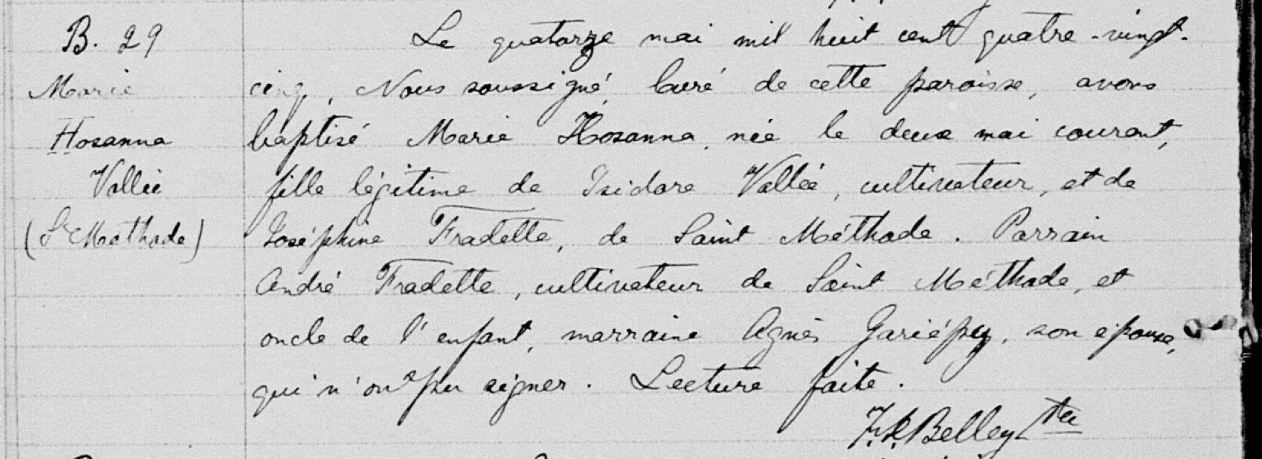 B. 29
Marie
Hosanna
Vallée
(St Méthode)
Le quatorze mai mil huit cent quatre-vingt-
cinq, Nous soussigné, Curé de cette paroisse, avons
baptisé Marie Hosanna, née le deux mai courant,
fille légitime de Isidore Vallée, cultivateur, et de
Joséphine Fradette, de Saint Méthode. Parrain
André Fradette, cultivateur de Saint Méthode, et
oncle de l'enfant, marraine Agnès Gariépy, son épouse,
qui n'ont pu signer. Lecture faite.
Belley Ptre